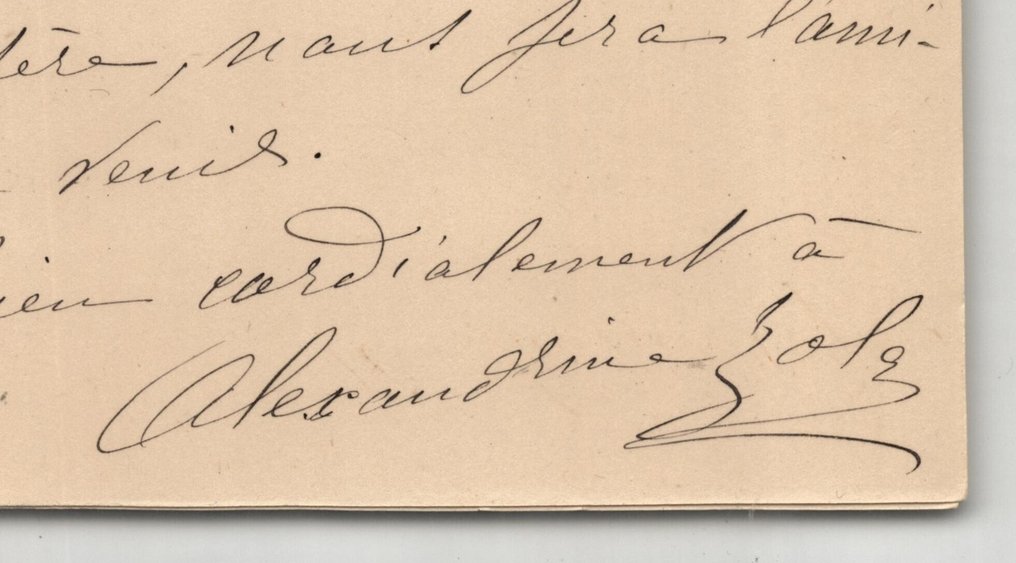 tère, nous fera l'ami-
venir.
ien cordialement à
Alexandrine Zola